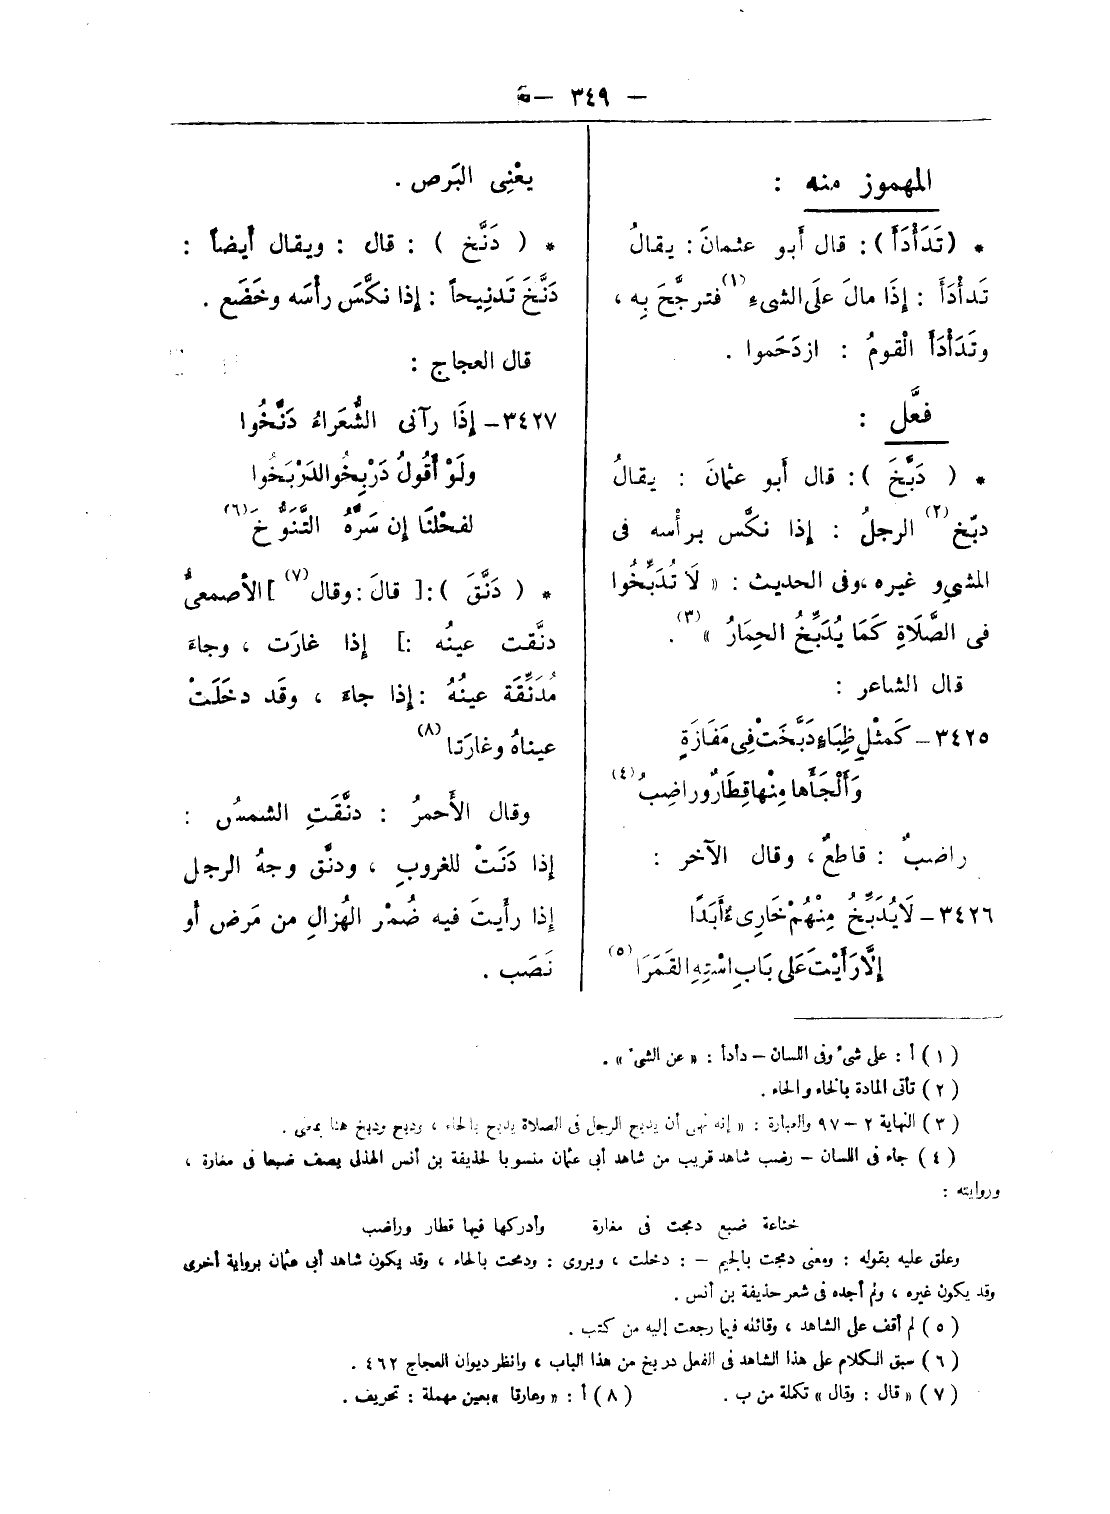 — ٣٤٩ —
المهموز منه :
* (تَدَأْدَأَ) : قال أبو عثمانَ : يقالُ
تَدأْدَأَ : إِذَا مالَ علَى الشىءِ (١) فترجَّحَ بِه ،
وتَدَأْدَأَ الْقومُ : ازدَحَموا .
فعَّل :
* ( دَبَّخَ ) : قال أَبو عثمانَ : يقالُ
دبّخ (٢) الرجلُ : إذا نكَّس برأْسه فى
المشىِ و غيره ، وفى الحديث : « لَا تُدَبِّخُوا
فى الصَّلَاةِ كَمَا يُدَبِّخُ الحِمَارُ » (٣) .
قال الشاعر :
٣٤٢٥ – كَمثْلِ ظِبَاءٍ دَبَّخَتْ فِى مَفَازَةٍ
وَأَلْجَأَها مِنْها قِطَارٌ وراضِبُ (٤)
راضبٌ : قاطعٌ ، وقال الآخر :
٣٤٢٦ – لَا يُدَبِّخُ مِنْهُمْ خَارِىءٌ أَبَدًا
إِلَّا رَأَيْتَ عَلى بَابِ اسْتِهِ القَمَرَا (٥)
يعْنِى البَرص .
* ( دَنَّخ ) : قال : ويقال أيضاً :
دَنَّخَ تَدنِيخاً : إذا نكَّسَ رأْسَه وخَضَع .
قال العجاج :
٣٤٢٧ – إِذَا رآنى الشُّعَراءُ دَنَّخُوا
ولَوْ أَقُولُ دَرْبِخُوا لدَرْبَخُوا
لفحْلنَا إن سَرَّهُ التَّنَوُّخَ (٦)
* ( دَنَّقَ ) : [ قالَ : وقال (٧) ] الأصمعىُّ
دنَّقت عينُه : ] إذا غارَت ، وجاءَ
مُدَنِّقَة عينُهُ : إذا جاءَ ، وقَد دخَلَتْ
عيناهُ وغارَتا (٨)
وقال الأَحمرُ : دنَّقَتِ الشمسُ :
إذا دَنَتْ للغروبِ ، ودنَّق وجهُ الرجل
إذا رأَيتَ فيه ضُمْر الهُزالِ من مَرَض أو
نَصَب .
( ١ ) أ : على شىء وفى اللسان – دأدأ : « عن الشىء » .
( ٢ ) تأتى المادة بالخاء والحاء .
( ٣ ) النهاية ٢ – ٩٧ والعبارة : « إنه نهى أن يدبح الرجل فى الصلاة يدبح بالحاء ، ودبح ودبخ هنا بمعنى .
( ٤ ) جاء فى اللسان – رضب شاهد قريب من شاهد أبى عثمان منسوبا لحذيفة بن أنس الهذلى يصف ضبعا فى مغارة ،
وروايته :
خناعة ضبع دمجت فى مغارة وأدركها فيها قطار وراضب
وعلق عليه بقوله : ومعنى دمجت بالجيم – : دخلت ، ويروى : ودمحت بالحاء ، وقد يكون شاهد أبى عثمان برواية أخرى
وقد يكون غيره ، ولم أجده فى شعر حذيفة بن أنس .
( ٥ ) لم أقف على الشاهد ، وقائله فيما رجعت إليه من كتب .
( ٦ ) سبق الكلام على هذا الشاهد فى الفعل دربخ من هذا الباب ، وانظر ديوان العجاج ٤٦٢ .
( ٧ ) « قال : وقال » تكملة من ب . ( ٨ ) أ : « وعارتا » بعين مهملة : تحريف .